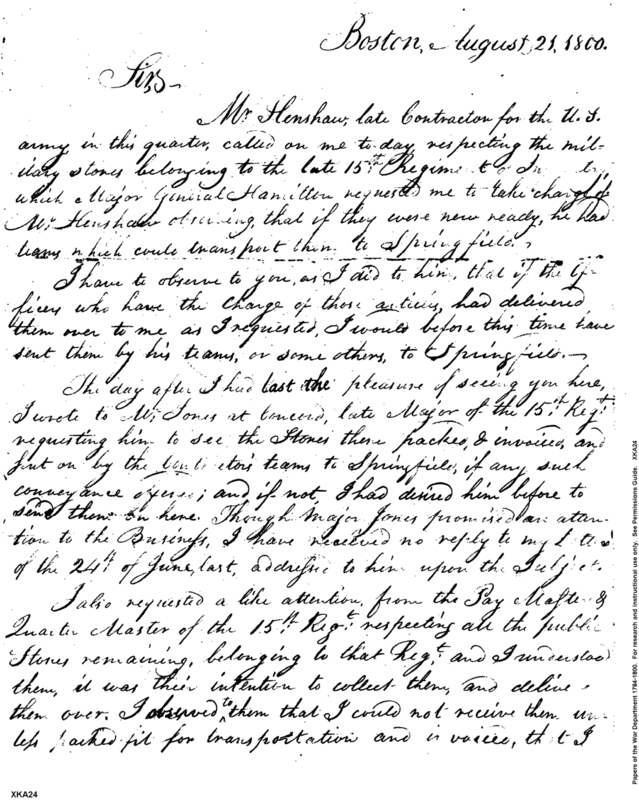 Boston, August, 21, 1800.
Sir,
Mr Henshaw, late Contractor for the U. S.
army in this quarter, called on me to day respecting the mil-
itary stores belonging to the late 15th Regiment of
which Major General Hamilton requested me to take charge of
Mr Henshaw observing, that if they were now ready, he had
teams which could transport them to Springfield.
I have to observe to you, as I did to him, that if the Of-
ficers who have the charge of those articles, had delivered
them over to me as I requested, I would before this time have
sent them by his teams, or some others, to Springfield.
The day after I had last the pleasure of seeing you here,
I wrote to Mr Jones at Concord, late Major of the 15th Regt
requesting him to see the Stores there packed, & invoiced, and
put on by the Contractors teams to Springfield, if any such
conveyance offered; and if not, I had desired him before to
send them on here. Though Major Jones promised an atten-
tion to the Business, I have received no reply to my
of the 24th of June, last, addressed to him upon the Subject.
I also requested a like attention, from the Pay Master &
Quarter Master of the 15th Regt respecting all the public
Stores remaining, belonging to that Regt and I understood
them, it was their intention to collect them, and deliver
them over. I observed to them that I could not receive them un-
less packed fit for transportation and invoiced, that I
XKA24
Papers of the War Department 1784-1800. For research and instructional use only. See Permissions Guide. XKA24